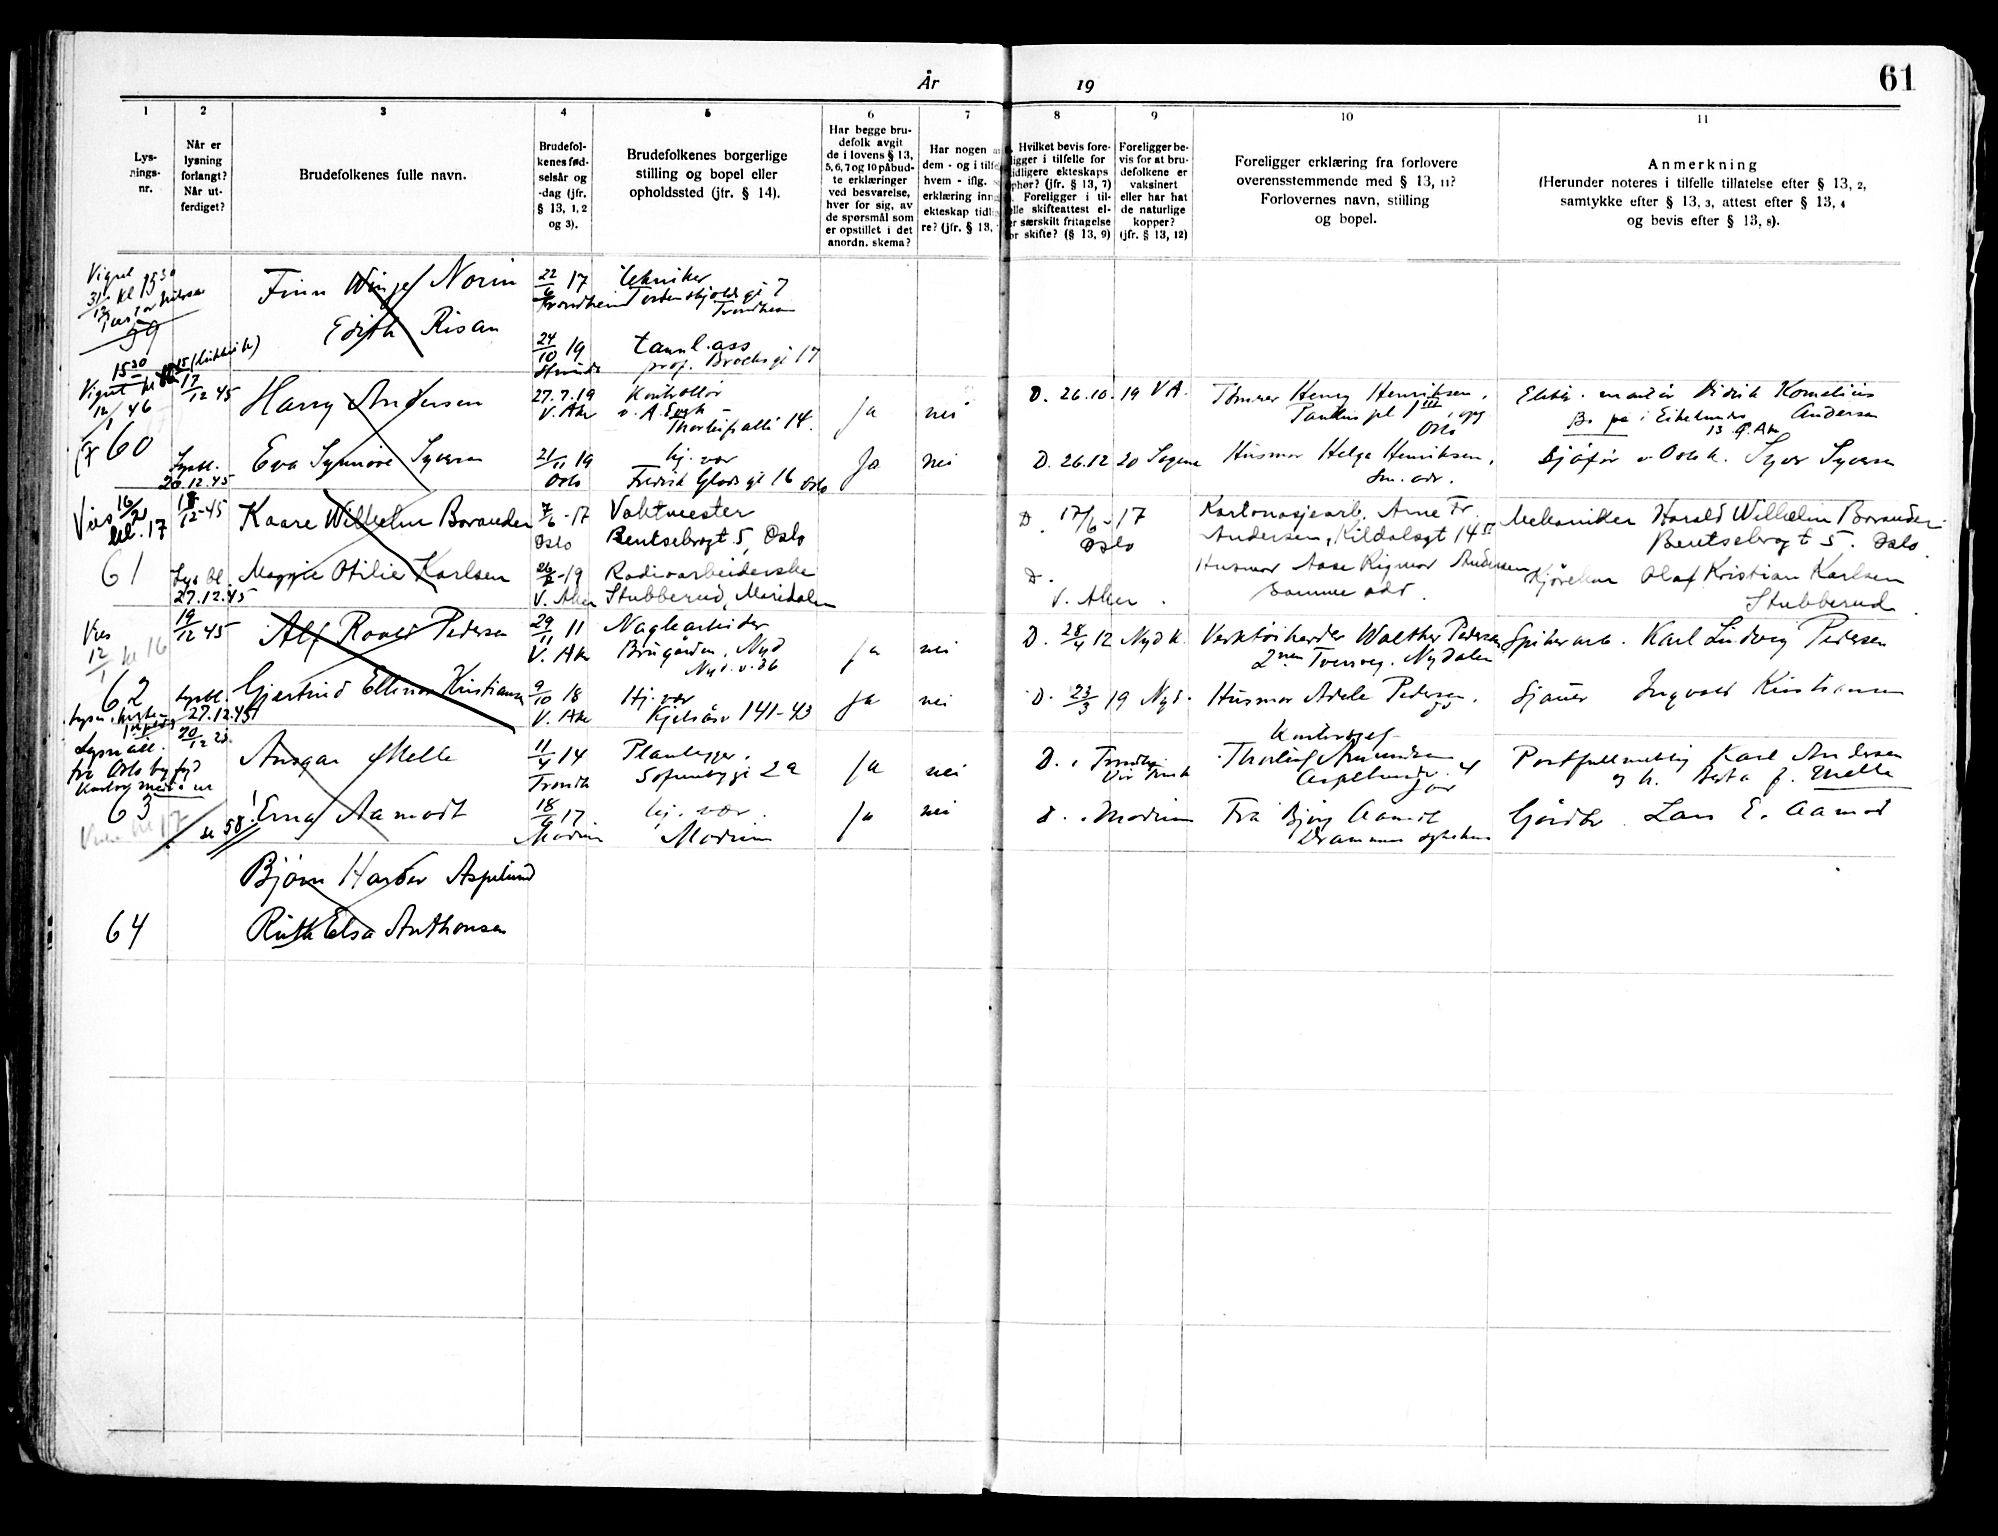 År 19
61
1
Lysnings-
nr.
2
Når er
lysning
forlangt?
Når ut-
ferdiget?
3
Brudefolkenes fulle navn.
4
Brudefol-
kenes fød-
selsår og
-dag (jfr.
§ 13, 1, 2
og 3).
5
Brudefolkenes borgerlige
stilling og bopel eller
opholdssted (jfr. § 14).
6
Har begge bru-
defolk avgit
de i lovens § 13,
5, 6, 7 og 10 påbud-
te erklæringer
ved besvarelse,
hver for sig, av
de spørsmål som
er opstillet i det
anordn. skema?
7
Har nogen
dem - og i tilf
hvem - iflg.
erklæring inng
ekteskap tidl
re? (jfr. § 13,
8
Hvilket bevis fore-
ligger i tilfelle for
tidligere ekteskaps
ophør? (jfr. § 13, 7)
Foreligger i til-
elle skifteattest el-
er særskilt fritagelse
or skifte? (§ 13, 9)
9
Foreligger be-
vis for at bru-
defolkene er
vaksinert
eller har hat
de naturlige
kopper?
(jfr. § 13, 12)
10
Foreligger erklæring fra forlovere
overensstemmende med § 13, 11?
Forlovernes navn, stilling
og bopel.
11
Anmerkning
(Herunder noteres i tilfelle tillatelse efter § 13, 2,
samtykke efter § 13, 3, attest efter § 13, 4
og bevis efter § 13, 8).
Vigsel
31/12 kl 15 30
59
Finn Winge Norin
22/6 17
Trondheim
tekniker
Tordenskjolds gt 7
Trondheim
Edith Risan
24/10 19
Strinda
tannl. ass
prof. Brochs gt 17
15 30
12/1 46
60
17/12 45
Harry Andersen
27.7.19
V. Aker
Kontrollør
14.
Ja
nei
D. 26.10.19 V A.
Henry Henriksen,
Oslo
Didrik Kornelius
Andersen
Lysbl.
20.12.45
Eva Synnøve Syversen
21/11 19
Oslo
hj. vær
Fredrik Glads gt 16 Oslo
Ja
nei
D. 26.12 20 Sagene
Husmor Helga Henriksen,
Sm. adr.
Sjåfør v Oslo k. Syver Syversen
Vies 16/2
kl. 17
61
18/12-45
Kaare Wilhelm Borander
7/6-17
Oslo
Vaktmester
Bentsebrogt 5, Oslo
D. 17/6-17
Oslo
Kartonasjearb. Arne Fr.
Andersen, Kildalsgt 14
Mekaniker Harald Wilhelm Borander
Bentsebrogt 5. Oslo.
Lysbl.
27.12.45
Maggie Otilie Karlsen
-19
V. Aker
Radioarbeiderske
Stubberud, Maridalen
D.
V. Aker.
Husmor Aase Rigmor Andersen
Samme adr.
Kjørekar Olaf Kristian Karlsen
Stubberud.
Vies
12/1 kl 16
62
19/12 45
Alf Roald Pedersen
29/11 11
V. Ake
Naglearbeider
Brugården, Nyd
Ja
nei
D. 28/4 12 Nyd k.
Verktøiherder Walther Pedersen
Nydalen
Spikerarb. Karl Ludvig Pedersen
Lysbl.
27.12.45
Gjertrud Ellinor Kristiansen
9/10 18
V. Ake
Hj. vær
Kjelsåsv 141-43
Ja
nei
D. 23/3 19 Nyd.
Husmor Adele Pedersen.
Sjauer Ingvald Kristiansen
Lysn.att.
fra Oslo byfgd
63
20/12
Ansgar Melle
11/4 14
Trondh
Planlegger.
Sofienbggt 2a
Ja
nei
D.
Kontorsjef
Thorleif Amundsen
Postfullmektig Karl Andersen
og h. Berta f. Melle
Vies kl 17
se 58!
Erna Aamodt
18/9 17
Modum
hj. vær.
Modum
Ja
nei
D. Modum
Frk Bjørg Aamodt
Drammen sykehus
Gårdbr. Lars E. Aamodt
64
Bjørn Harder Aspelund
Ruth Elsa Anthonsen